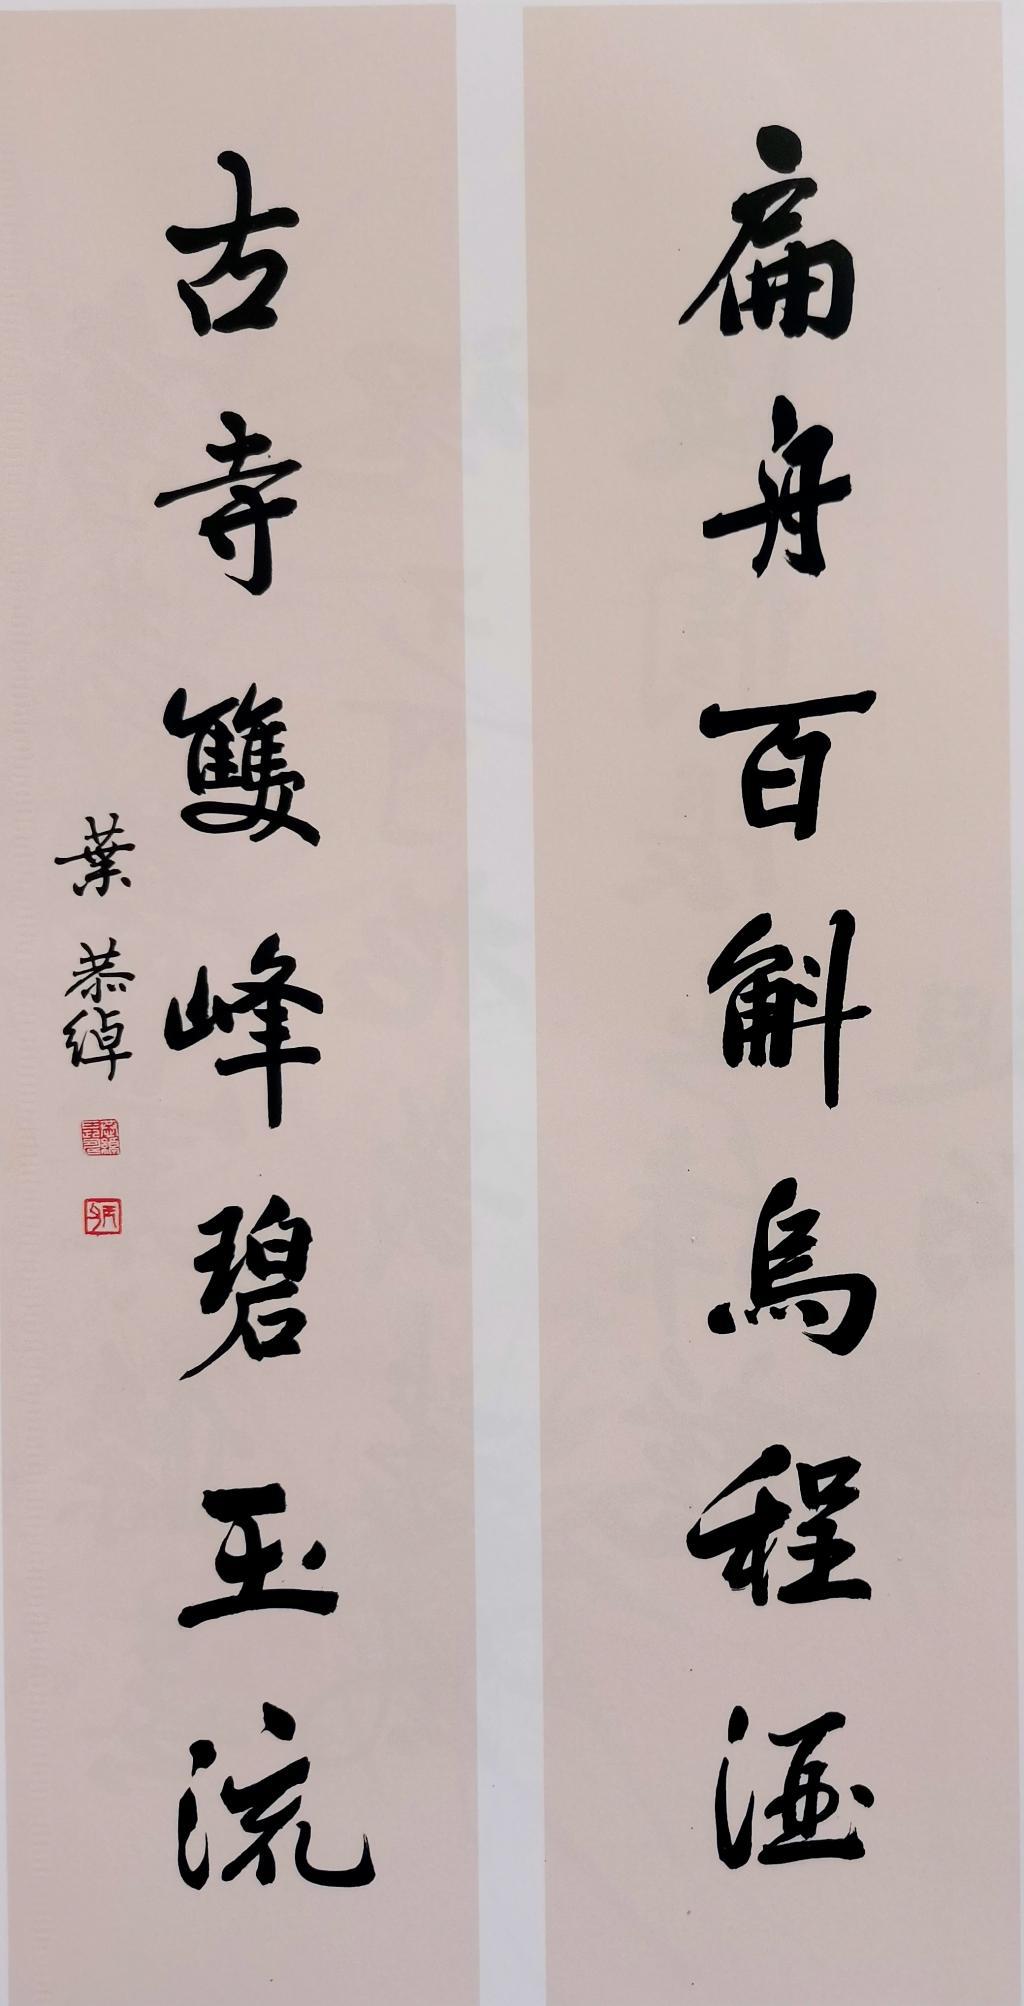 扁舟百斛烏程酒
古寺雙峰碧玉流
葉恭綽